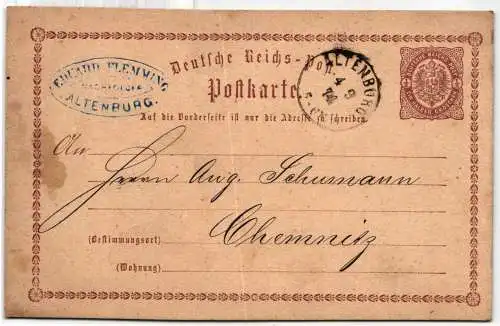 EDUARD FLEMMING
ALTENBURG.
Deutsche Reichs-Post.
ALTENBURG
4 9
74
Postkarte
Auf die Vorderseite ist nur die Adresse zu schreiben.
An
Herrn Aug. Schumann
(Bestimmungsort)
Chemnitz
(Wohnung)